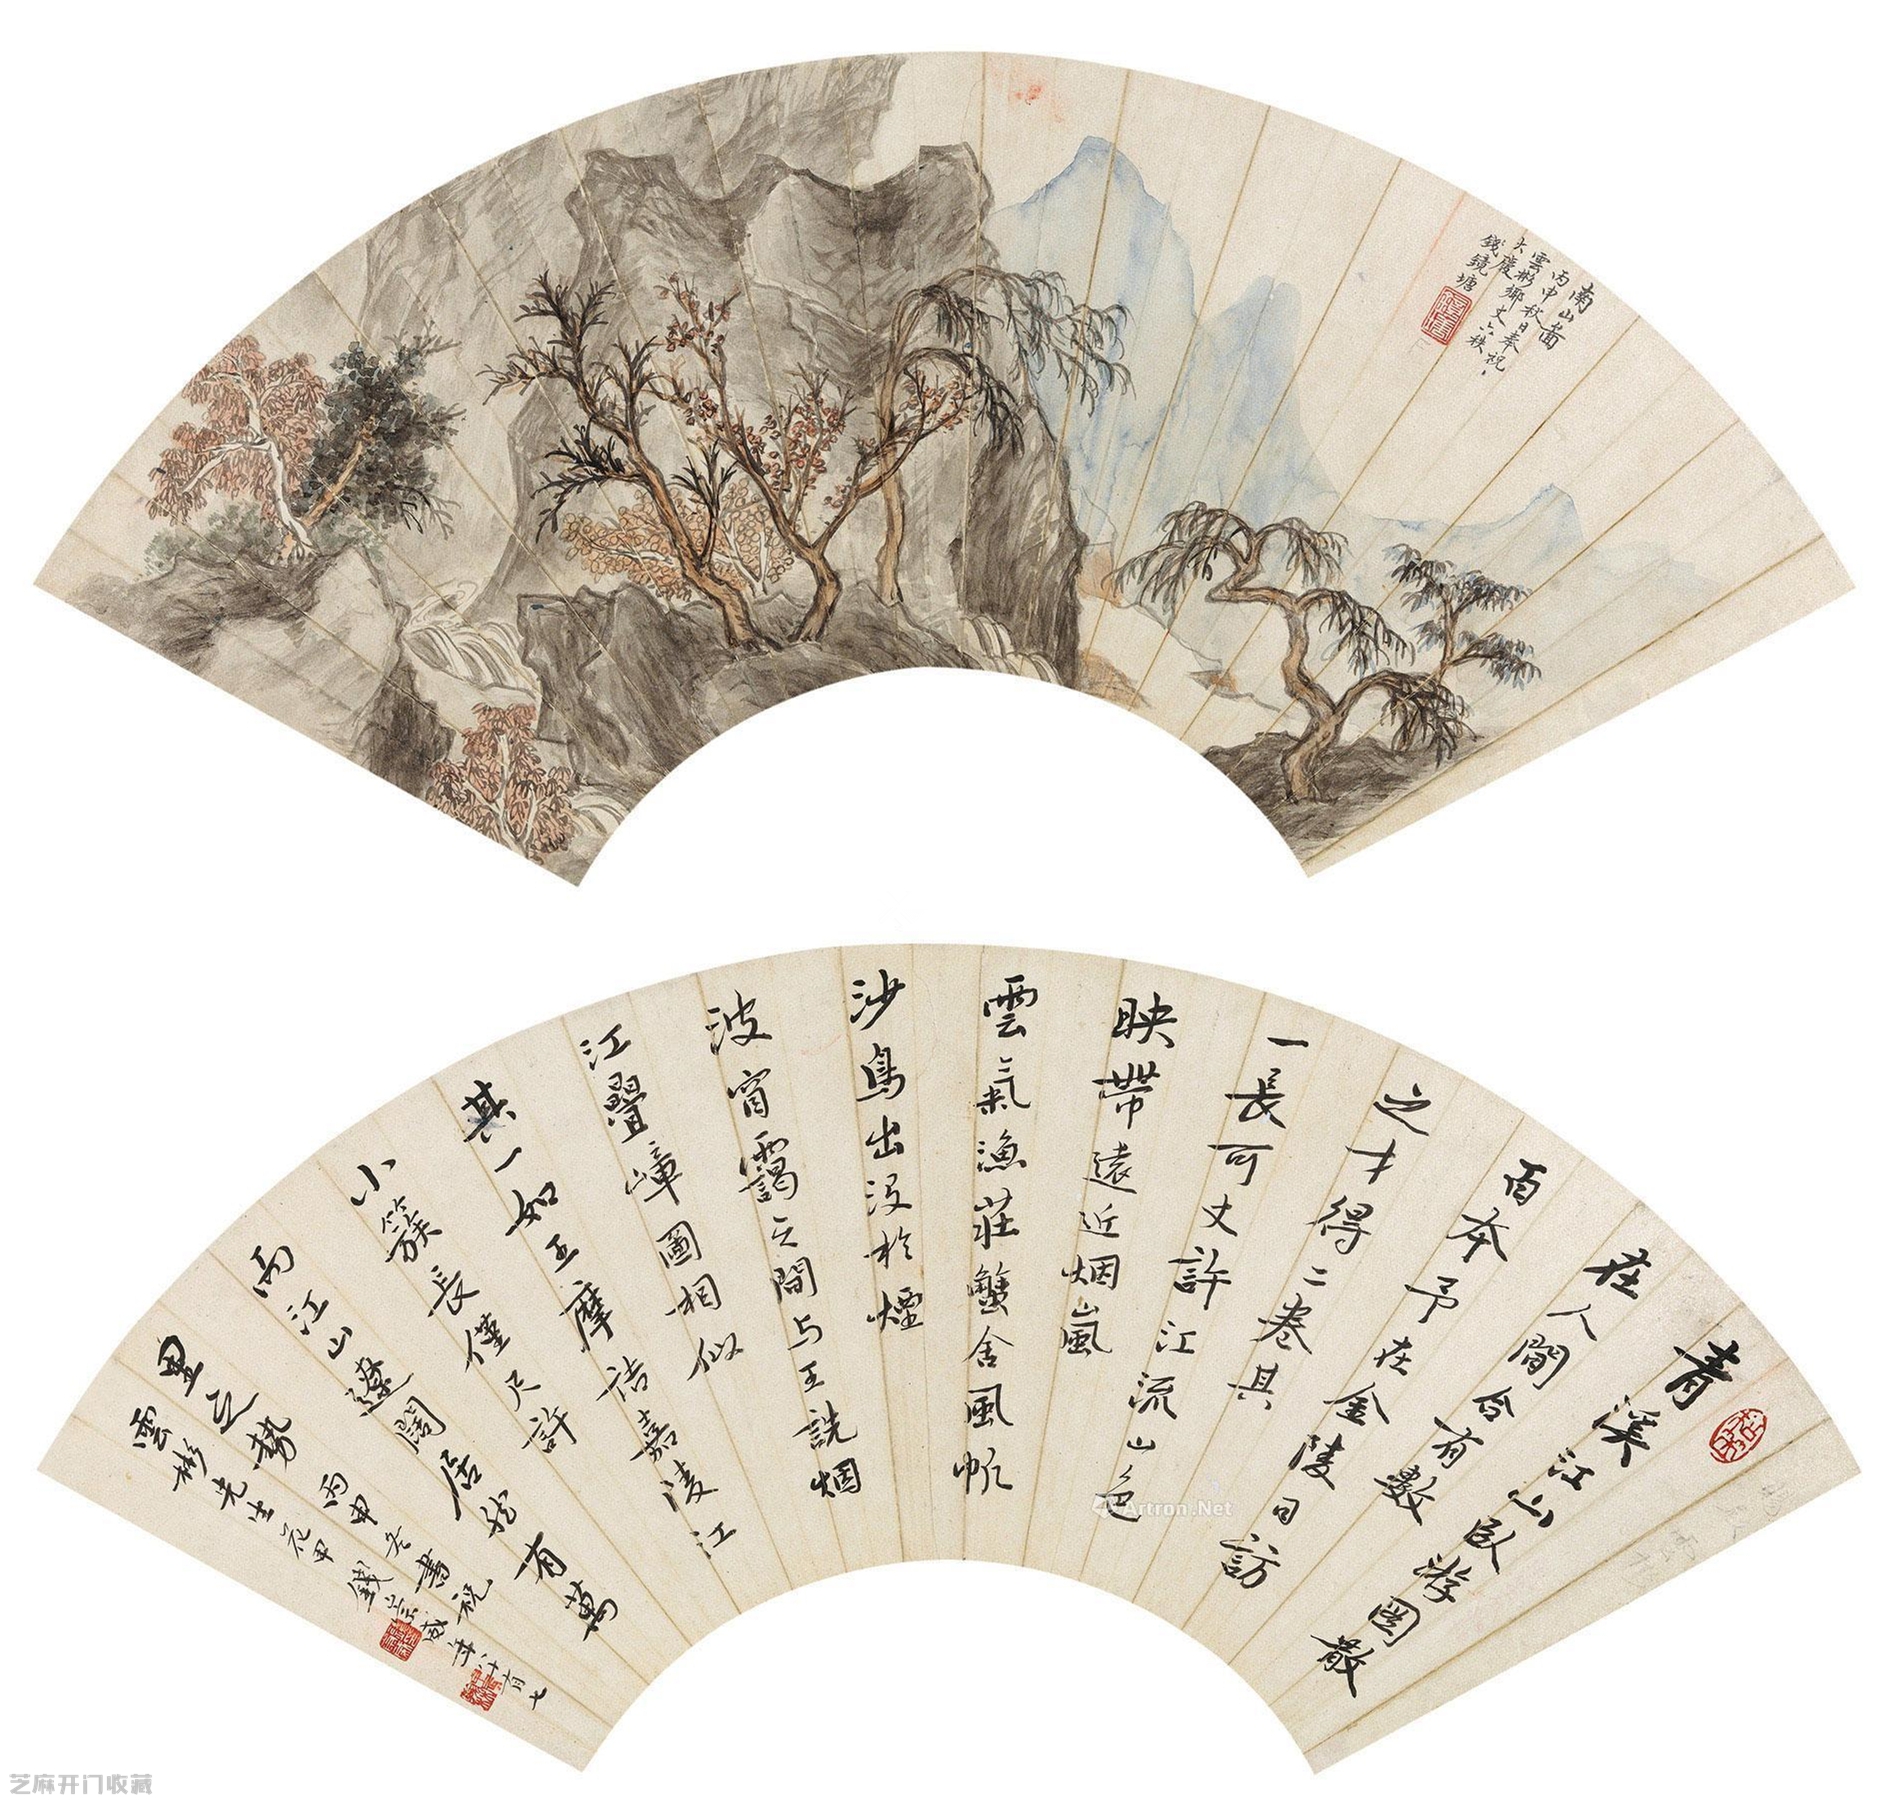 南山圖
丙申秋日奉祝
雲彬鄉丈六秩
大慶
錢鏡塘
青溪江山臥游圖散
在人間合有數
百本予在金陵日訪
之才得二卷其
一長可丈許江流山色
映帶遠近烟嵐
雲氣漁莊蟹舍風帆
沙鳥出沒於煙
波窅靄之間與王詵烟
江疊嶂圖相似
其一如王摩詰嘉陵江
小簇長僅尺許
而江山遼闊居然有萬
里之勢
丙申冬書祝
雲彬先生花甲
錢崇威年八十有七
Artron.Net
芝麻开门收藏